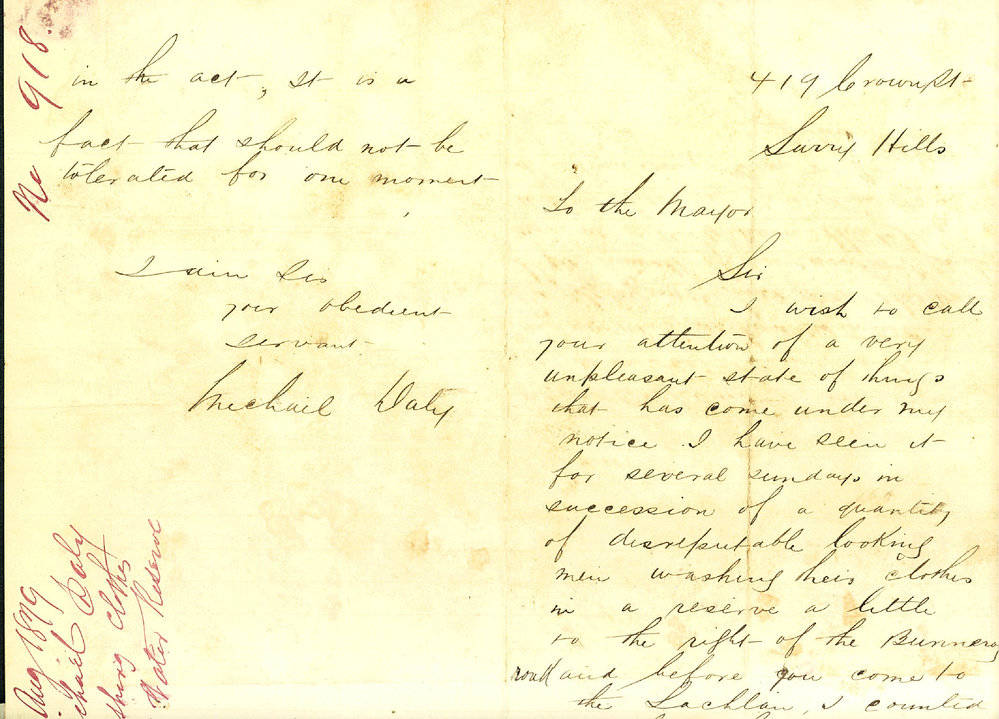 419 Crown St
Surry Hills
To the Mayor
Sir
I wish to call
your attention of a very
unpleasant state of things
that has come under my
notice. I have seen it
for several sundays in
succession of a quantity
of disreputable looking
men washing their clothes
in a reserve a little
to the right of the Bunnerong
road and before you come to
the Lachlan, I counted
in the act, It is a
fact that should not be
tolerated for one moment
I am Sir
your obedient
servant
Michael Daly
No 918.
Aug 1879
Michael Daly
clothes
Water Reserve